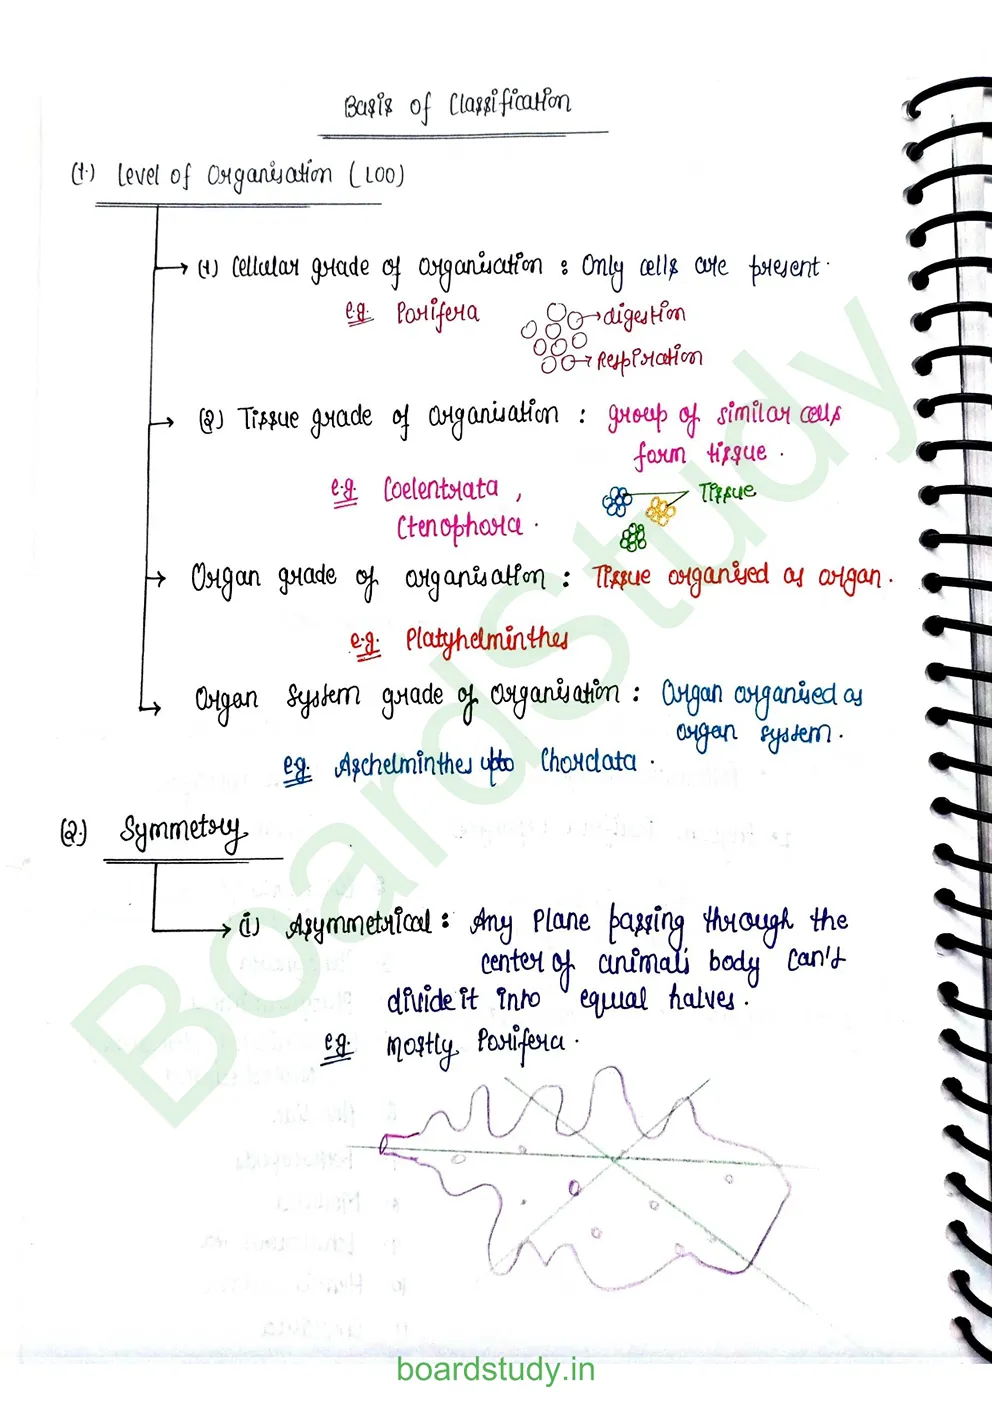 Basis of Classification
(1.) Level of Organisation (LOO)
(1) Cellular grade of organisation : Only cells are present.
e.g. Porifera
digestion
Respiration
(2) Tissue grade of organisation : group of similar cells
form tissue.
e.g. Coelentrata ,
Ctenophora.
Tissue
Organ grade of organisation : Tissue organised as organ.
e.g. Platyhelminthes
Organ system grade of organisation : Organ organised as
organ system.
e.g. Aschelminthes upto Chordata.
(2.) Symmetry
(i) Asymmetrical : Any Plane passing through the
center of animals body can't
divide it into equal halves.
e.g. mostly Porifera.
Boardstudy
boardstudy.in